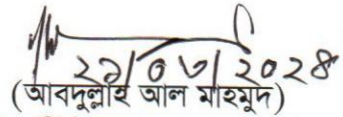 ২৯/০৩/২০২৪
(আবদুল্লাহ আল মাহমুদ)